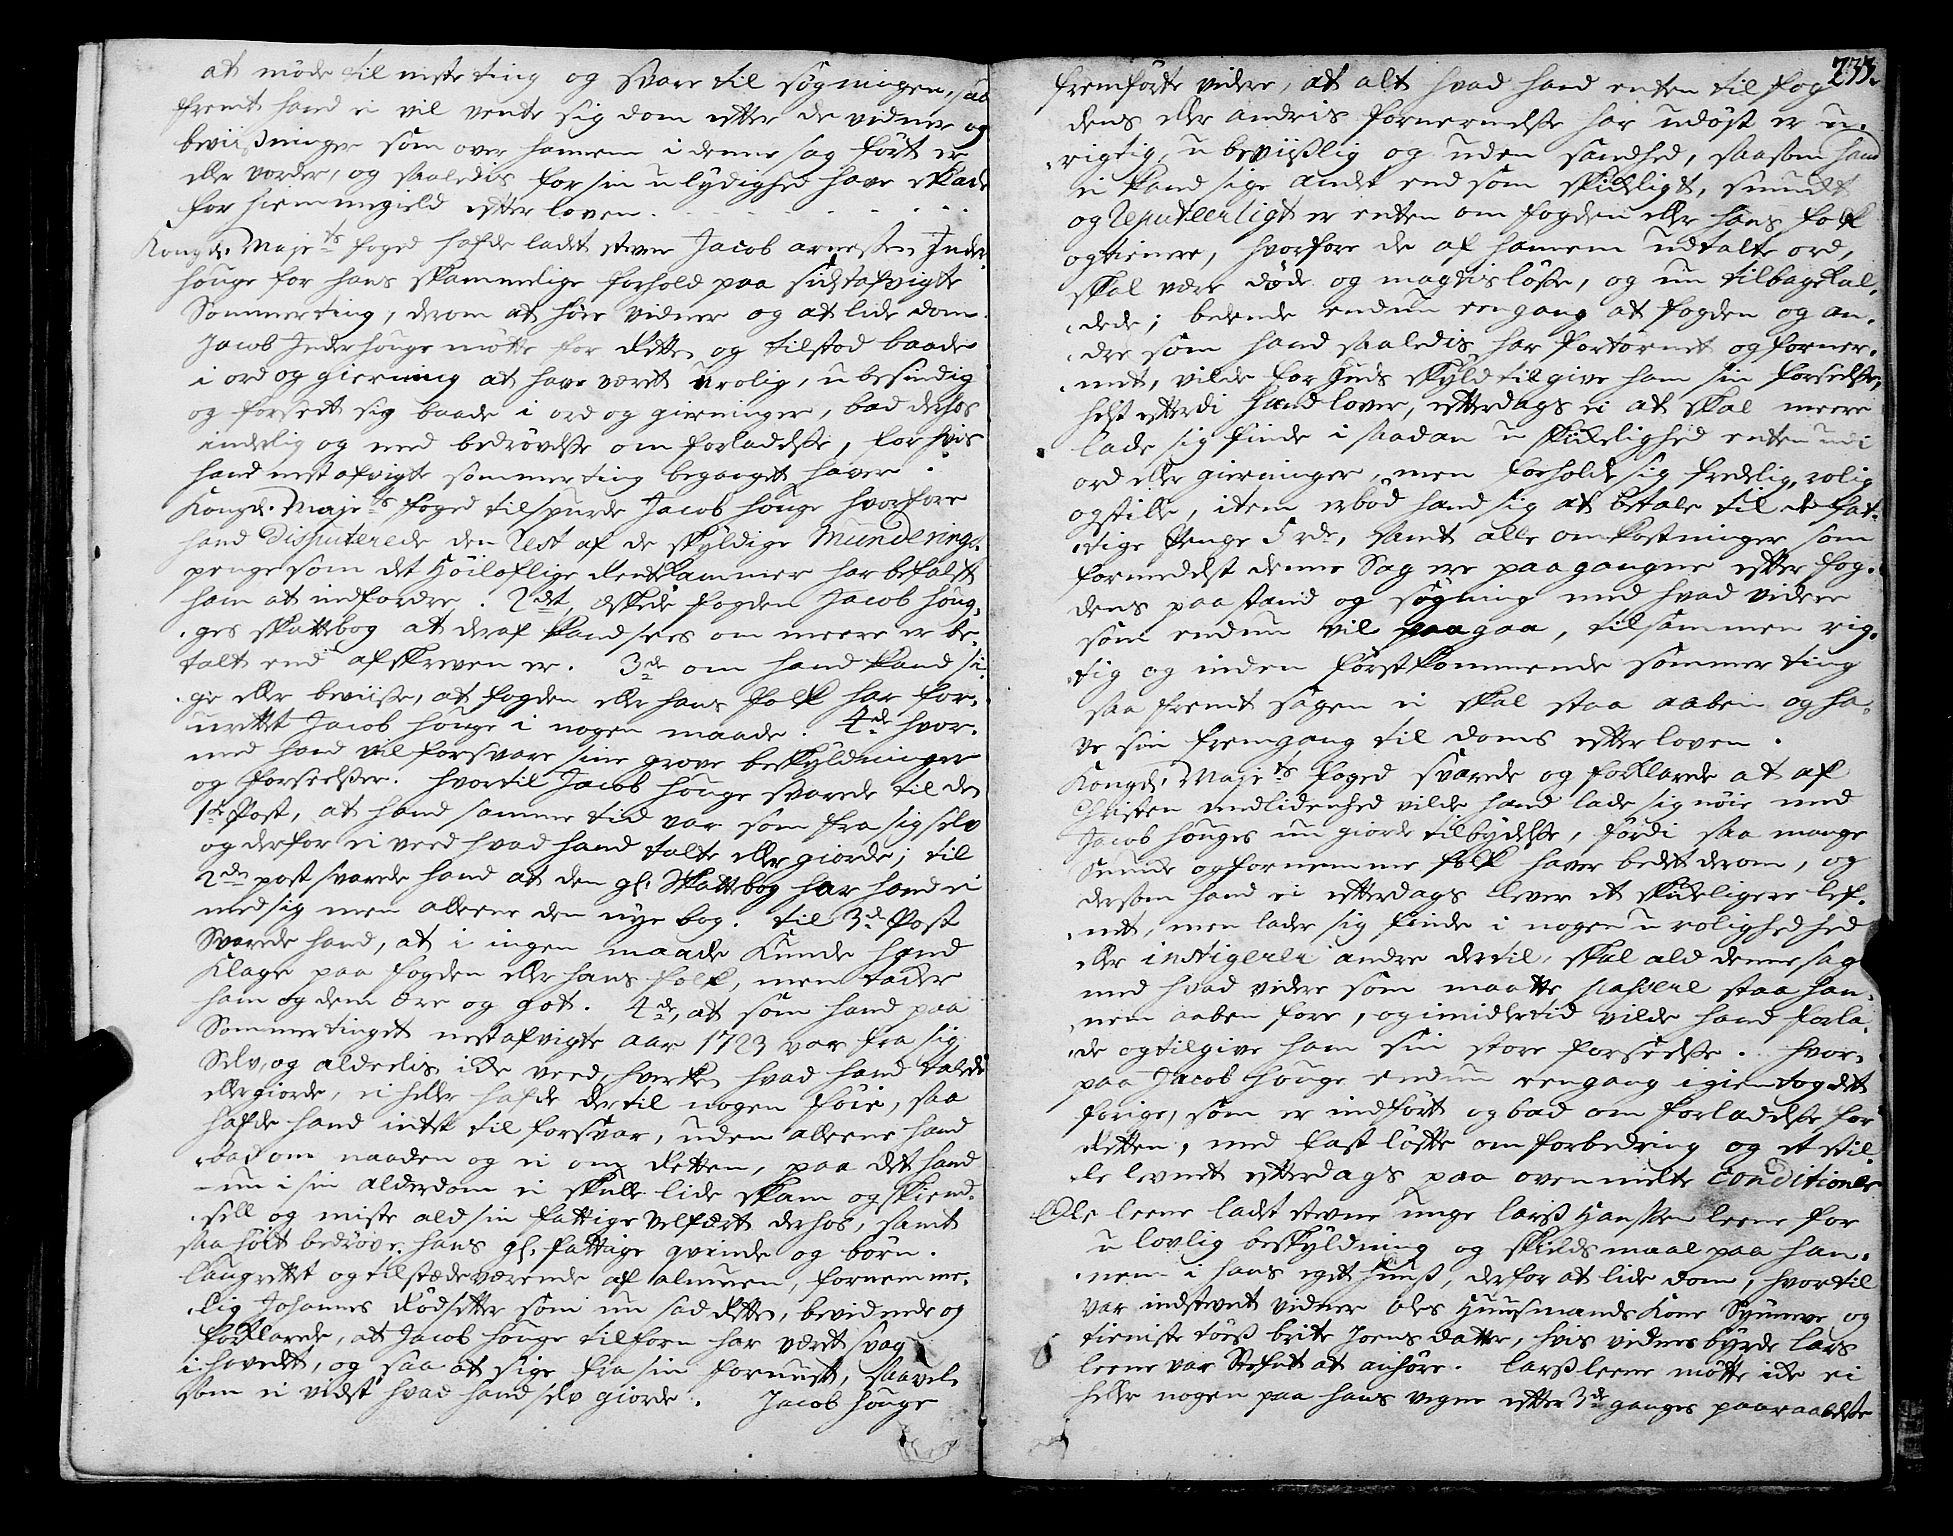 at møde til neste ting og svare til søgningen, saa
fremt hand ei vil vente sig dom efter de vidner og
beviisninger som over hannem i denne sag ført er
eller vorder, og saaledis for sin ulydighed have skade
for hiemmgield efter loven.
Kongl. Majets foged hafde ladet stevne Jacob arnesen Inder-
houge for hans skammelige forhold paa sidstafvigte
Sommerting, derom at høre vidner og at lide dom.
Jacob Inderhouge møtte for Retten og tilstod baade
i ord og gierning at have været urolig, ubesindig
og forseet sig baade i ord og gierninger, bad derhos
inderlig og med bedrøvelse om forladelse, for hvis
hand nestafvigte sommerting begaaget haver.
Kongl. Majets foged tilspurde Jacob houge hvorfore
hand Disputerede den Rest af de skyldige Munderings-
penge som det Høiloflige Rentekammer har befalet
ham at indfordre. 2det, Eskede fogden Jacob houg-
ges skattebog at deraf kand sees om meere er be-
talt end afskreven er. 3de om hand kand si-
ge eller beviise, at fogden eller hans folk har for-
urettet Jacob houge i nogen maade. 4de hvor-
med hand vil forsvare sine grove beskyldninger
og forseelser. Hvortil Jacob houge svarede til den
1te Post, at hand samme tid var som fra sig selv
og derfor ei veed hvad hand talte eller giorde; til
2den post svarede hand at den gl. Skattebog har hand ei
med sig men alleene den nye bog. til 3de Post
Svarede hand, at i ingen maade kunde hand
klage paa fogden eller hans folk, men tacker
ham og dem ære og got. 4de, at som hand paa
Sommertinget nestafvigte aar 1723 var fra sig
Selv, og alderlis icke veed, hverken hvad hand talede
eller giorde, ei heller hafde dertil nogen føie, saa
hafde hand intet til forsvar, uden alleene hand
bad om naaden og ei om Retten, paa det hand
nu i sin alderdom ei skulle lide skam og skiend-
sell og miste ald sin fattige velfært derhos, samt
saa høit bedrøve hans gl. fattige qvinde og børn.
laugrettet og tilstædeværende af almuen, fornemme-
lig Johannes Rødsetter som nu sad Retten, bevidnede og
forklarede, at Jacob houge tilforn har været svag
i hovedet, og saa at sige fra sin fornuft, saavel
som ei vidst hvad hand selv giorde. Jacob houge
233.
fremførte videre, at alt hvad hand enten til fog-
dens eller andris fornermelse har udøst er u-
rigtig, ubeviislig og uden sandhed, saasom hand
ei kand sige andet end som skickeligt, smuckt
og Reputeerligt er enten om fogden eller hans folk
og tienere, hvorfore de af hannem udtalte ord,
skal være døde og magtisløse, og nu tilbagekal-
dede; beende endnu eengang at fogden og an-
dre som hand saaledis har fortørnet og forner-
met, vilde for Guds skyld tilgive ham sin forseelse,
helst efterdi hand lover, efterdags ei at skal meere
lade sig finde i saadan uskickelighed enten udi
ord eller gierninger, men forholde sig fredelig, rolig
og stille, item erbød hand sig at betale til de fat-
tige penge 5 rdr, samt alle omkostninger som
formedelst denne Sag ere paagangne efter fog-
dens paastand og søgning med hvad videre
som endnu vil paagaa, tilsammen rig-
tig og inden førstkommende sommerting
saa fremt sagen ei skal staa aaben og ha-
ve sin fremgang til doms efter loven.
Kongl. Majets foged svarede og forklarede at af
Christen medlidenhed vilde hand lade sig nøie med
Jacob houges nu giorde tilbydelse, fordi saa mange
Smucke og fornemme folk haver bedet derom, og
dersom hand ei efterdags lever et skickeligere lef-
net, men lader sig finde i nogen urolighedhed
eller instigerer andre dertil, skal ald denne sag
med hvad videre som maatte passere staa han-
nem aaben fore, og imidlertid vilde hand forla-
de og tilgive ham sin store forseelse. Hvor-
paa Jacob houge endnu eengang igientog det
forige, som er indført og bad om forladelse for
Retten, med fast løfte om forbedring og et stil-
le levnet efterdags paa ovenmelte Conditioner
Ole leene ladt stevne unge larss Hanssen leene for
ulovlig beskyldning og skieldsmaal paa han-
nem i hans eget huuss, derfor at lide dom, hvortil
var indstevnt vidner Oles Huusmands kone Synneve og
tieniste tøss brite Joensdatter, hvis vidnesbyrde lars
leene var stefnt at anhøre. larss leene møtte icke ei
heller nogen paa hans vegne efter 3de ganges paaraabelse